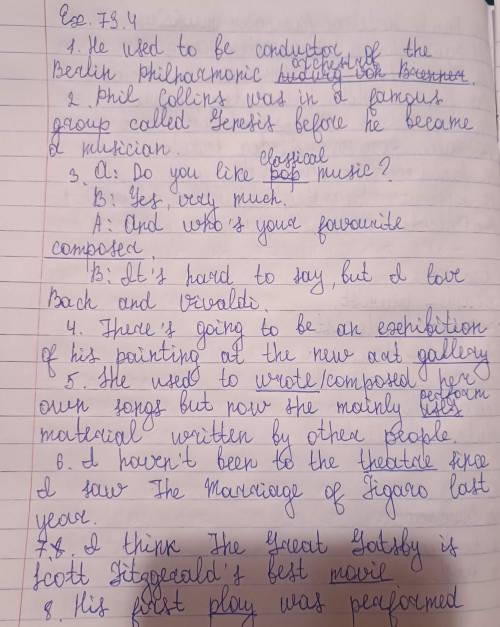 Ex. 73.4
1. He used to be conductor of the
Berlin philharmonic orchestra.
2. Phil Collins was in a famous
group called Genesis before he became
a musician.
3. A: Do you like classical pop music?
B: Yes, very much.
A: And who's your favourite
composer.
B: It's hard to say, but I love
Bach and Vivaldi.
4. There's going to be an exehibition
of his painting at the new art gallery
5. She used to wrote/composed her
own songs but now she mainly perform uses
material written by other people.
6. I haven't been to the theatre since
I saw The Marriage of Figaro last
year.
7. I think The Great Gatsby is
Scott Fitzgerald's best movie
8. His first play was performed